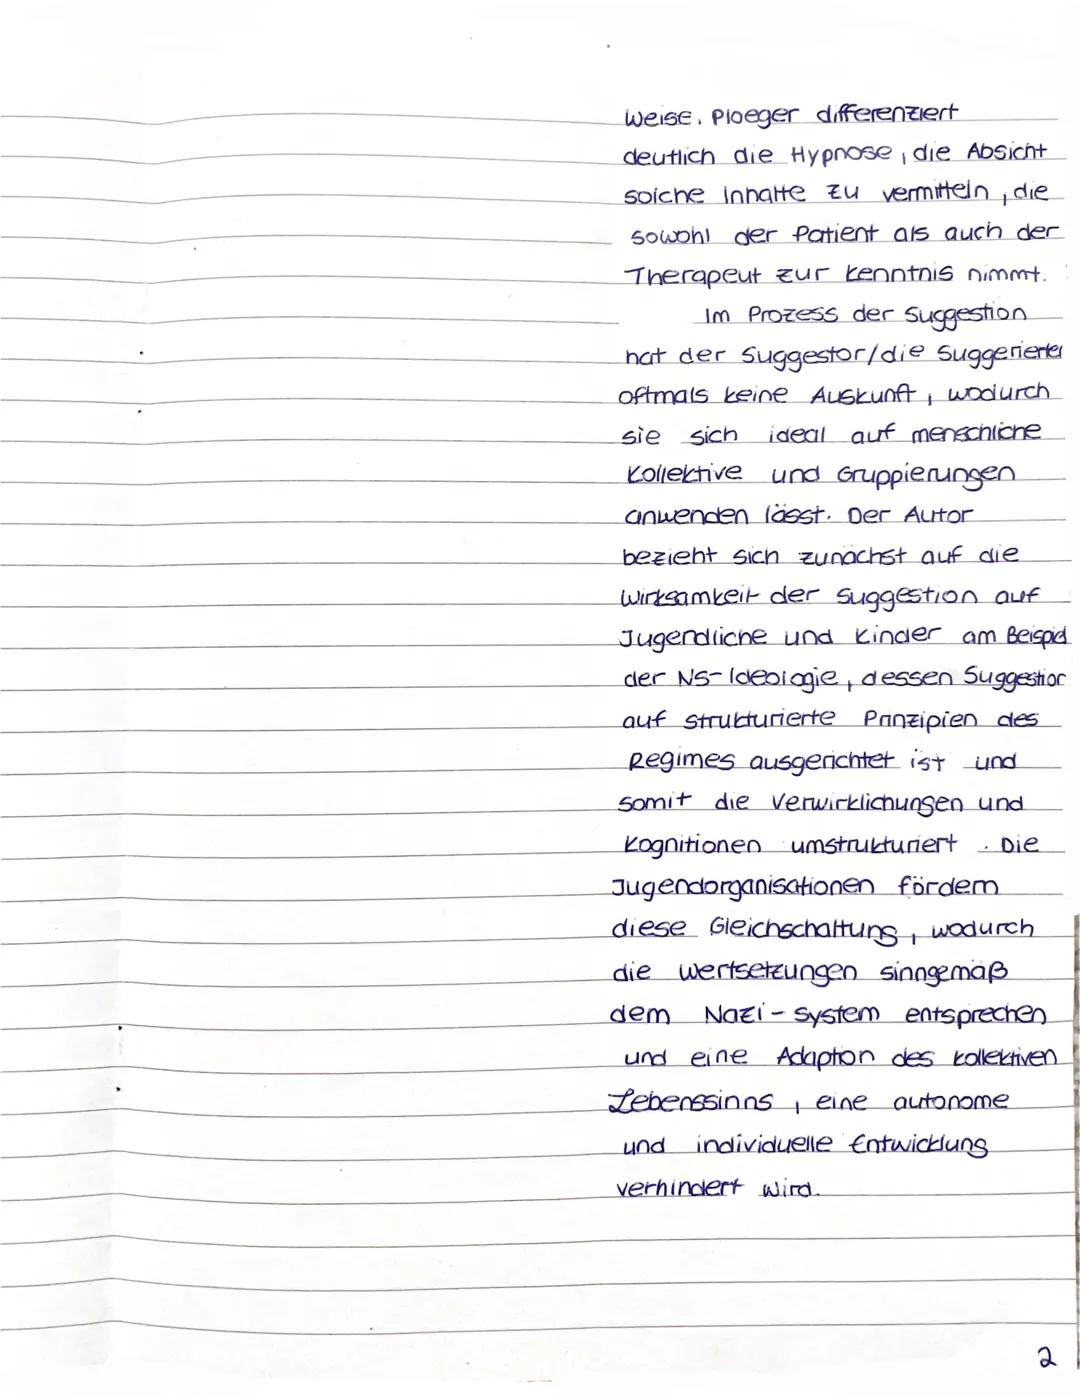 weise. Ploeger differenziert
deutlich die Hypnose, die Absicht
solche Inhalte zu vermitteln, die
sowohl der Patient als auch der
Therapeut zur Kenntnis nimmt.
Im Prozess der Suggestion
hat der Suggestor/die Suggerierter
oftmals keine Auskunft, wodurch
sie sich ideal auf menschliche
Kollektive und Gruppierungen
anwenden lässt. Der Autor
bezieht sich zunächst auf die
Wirksamkeit der Suggestion auf
Jugendliche und Kinder am Beispiel
der NS-Ideologie, dessen Suggestion
auf strukturierte Prinzipien des
Regimes ausgerichtet ist und
somit die Verwirklichungen und
Kognitionen umstrukturiert. Die
Jugendorganisationen fördern
diese Gleichschaltung, wodurch
die Wertsetzungen sinngemäß
dem Nazi-System entsprechen
und eine Adaption des kollektiven
Lebenssinns, eine autonome
und individuelle Entwicklung
verhindert wird.
2